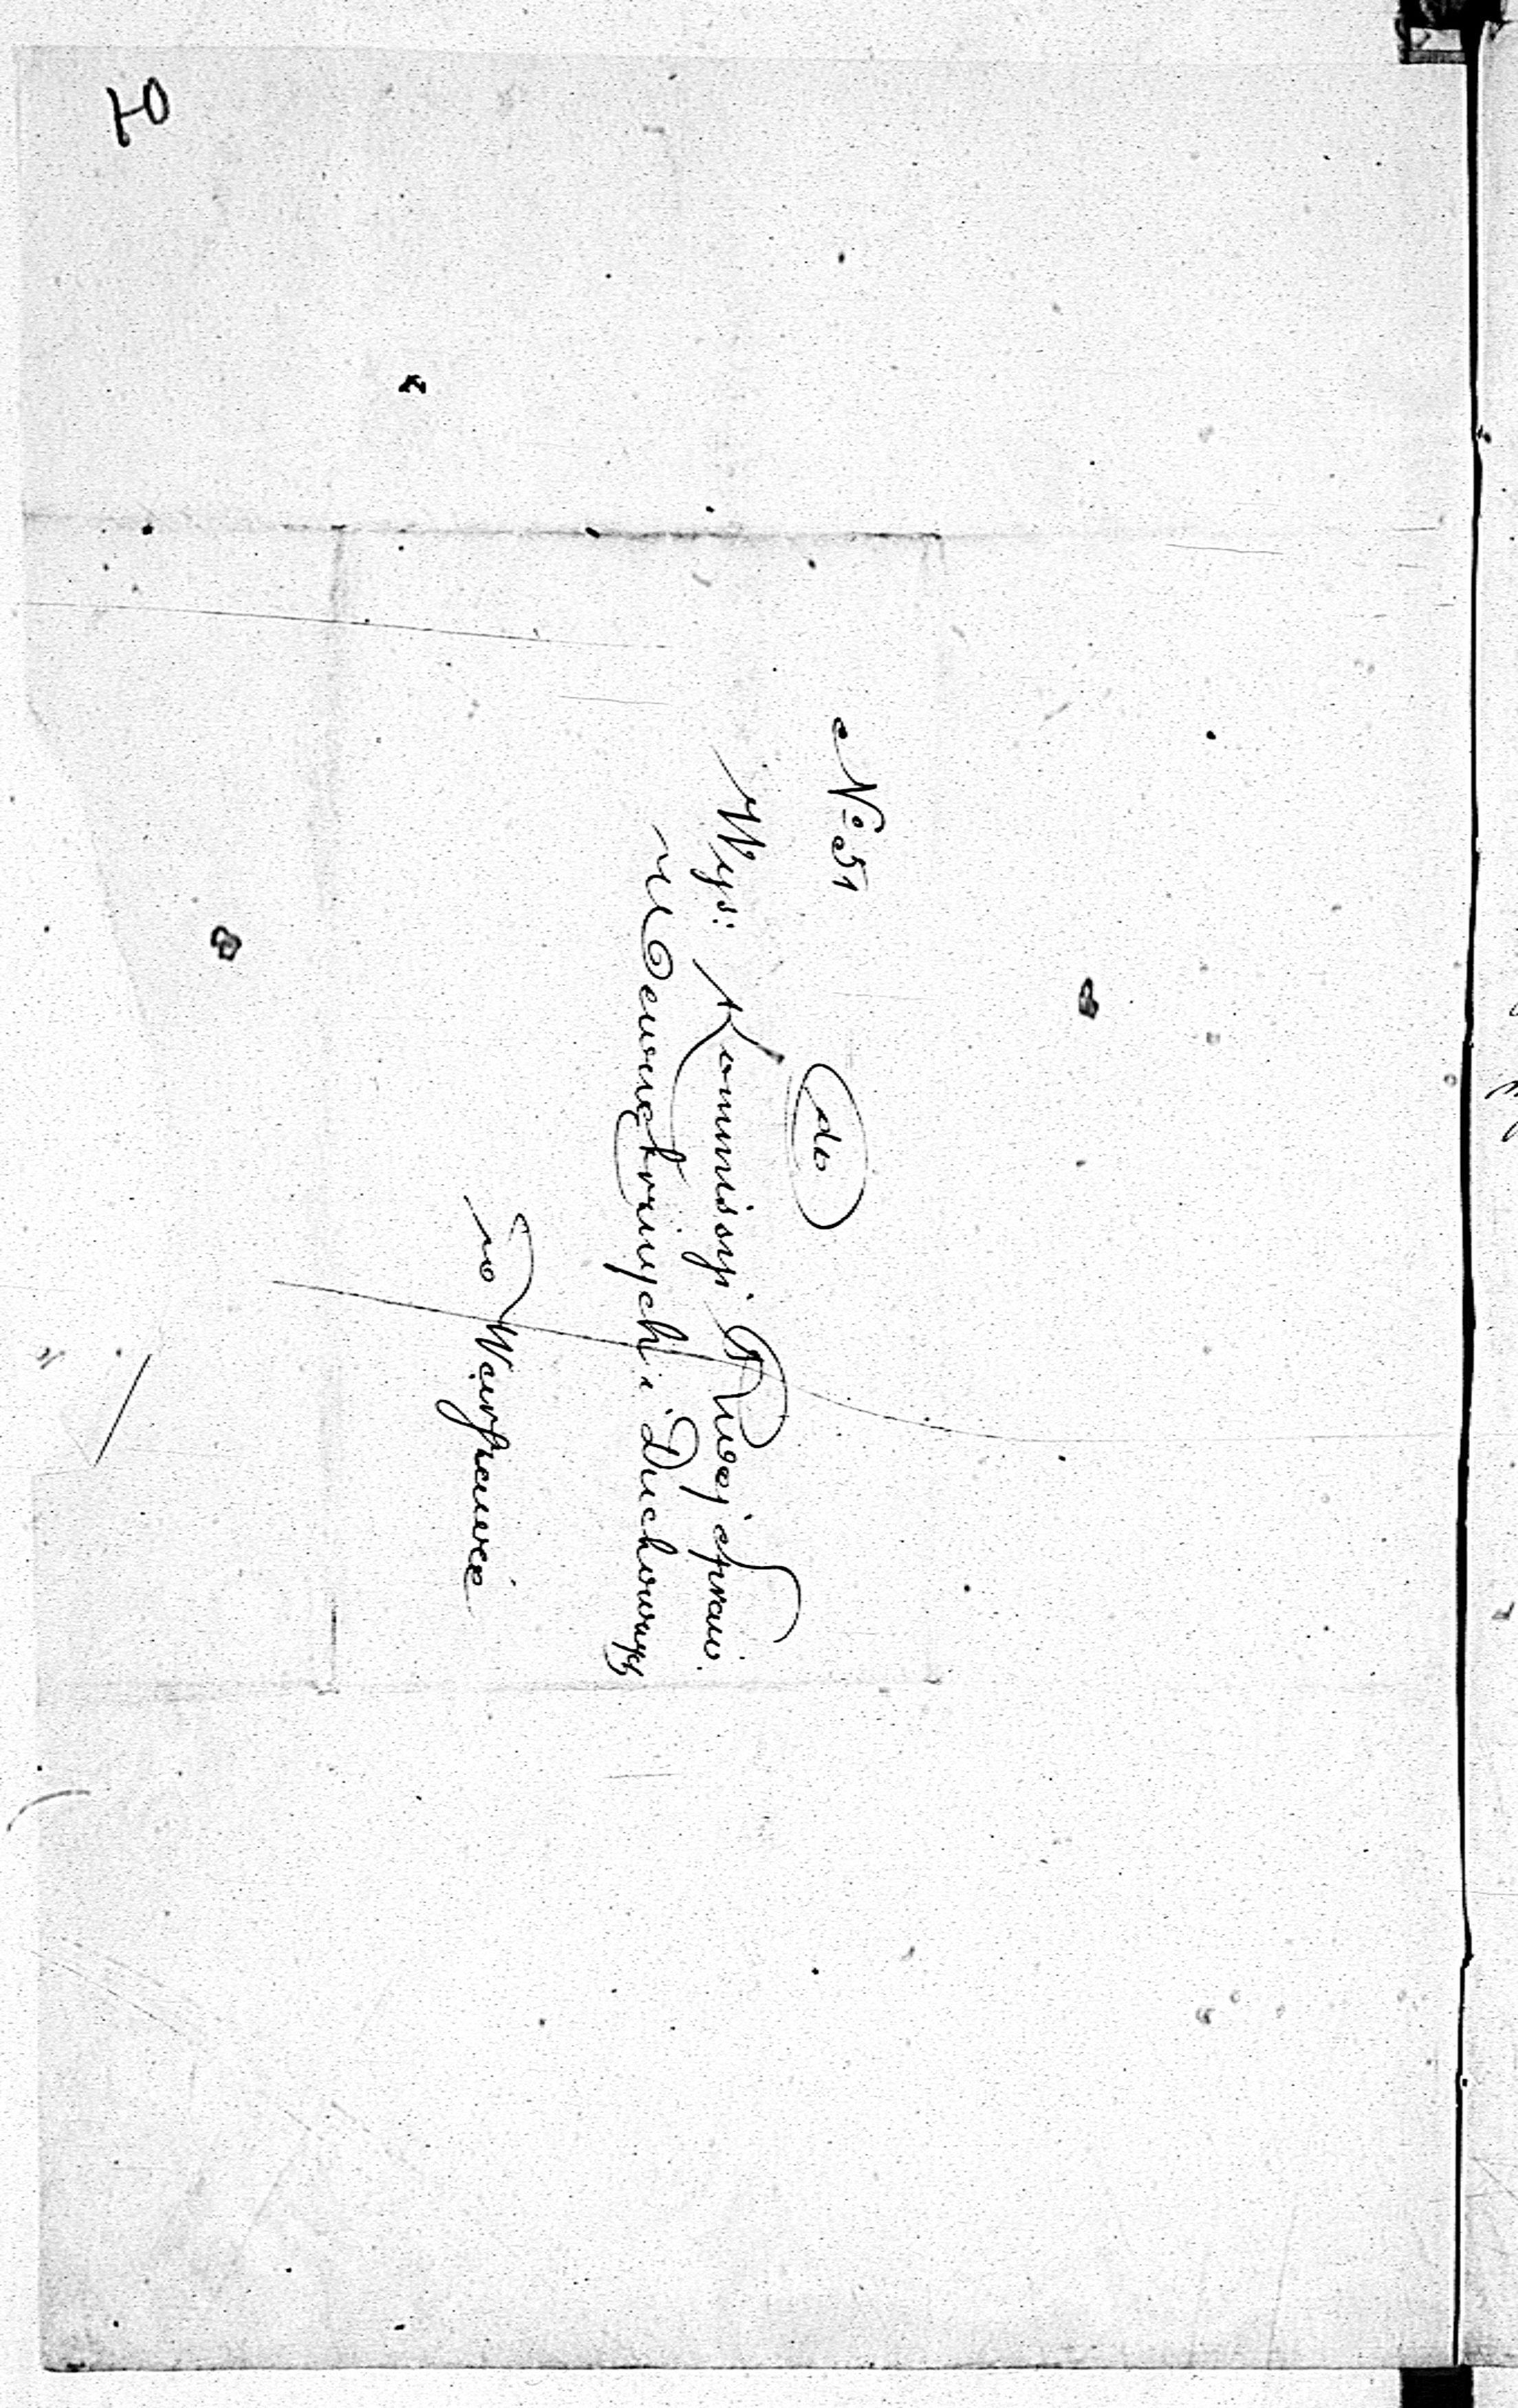 Ю
№ 51
do
Wys: Kommissyi Rząd: Spraw
Wewnętrznych i Duchownych
w Warszawie